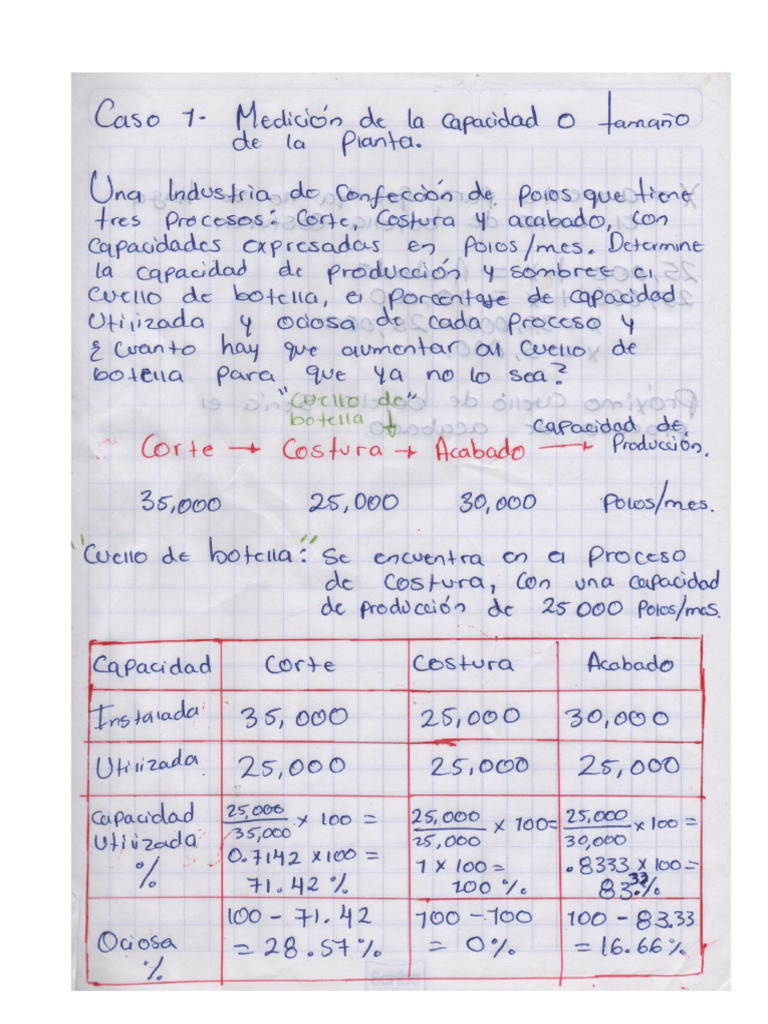 Caso 1- Medición de la capacidad o tamaño
de la Planta.
Una Industria de Confección de Polos que tiene
tres Procesos: Corte, Costura y acabado, con
capacidades expresadas en Polos/mes. Determine
la capacidad de producción y sombree el
cuello de botella, el porcentaje de capacidad
Utilizada y ociosa de cada proceso y
¿Cuanto hay que aumentar al Cuello de
botella para que ya no lo sea?
"Cuello de"
botella
Corte → Costura → Acabado → capacidad de
Producción.
35,000 25,000 30,000 Polos/mes.
"Cuello de botella:" Se encuentra en el Proceso
de costura, con una capacidad
de producción de 25000 Polos/mes.
Capacidad Corte Costura Acabado
Instalada 35,000 25,000 30,000
Utilizada 25,000 25,000 25,000
Capacidad Utilizada %
25,000/35,000 x 100 =
0.7142 x 100 =
71.42 %
25,000/25,000 x 100=
1 x 100 =
100 %.
25,000/30,000 x 100 =
.8333 x 100 =
83.33%
Ociosa %
100 - 71.42
= 28.57%
100 - 100
= 0%
100 - 83.33
= 16.66%